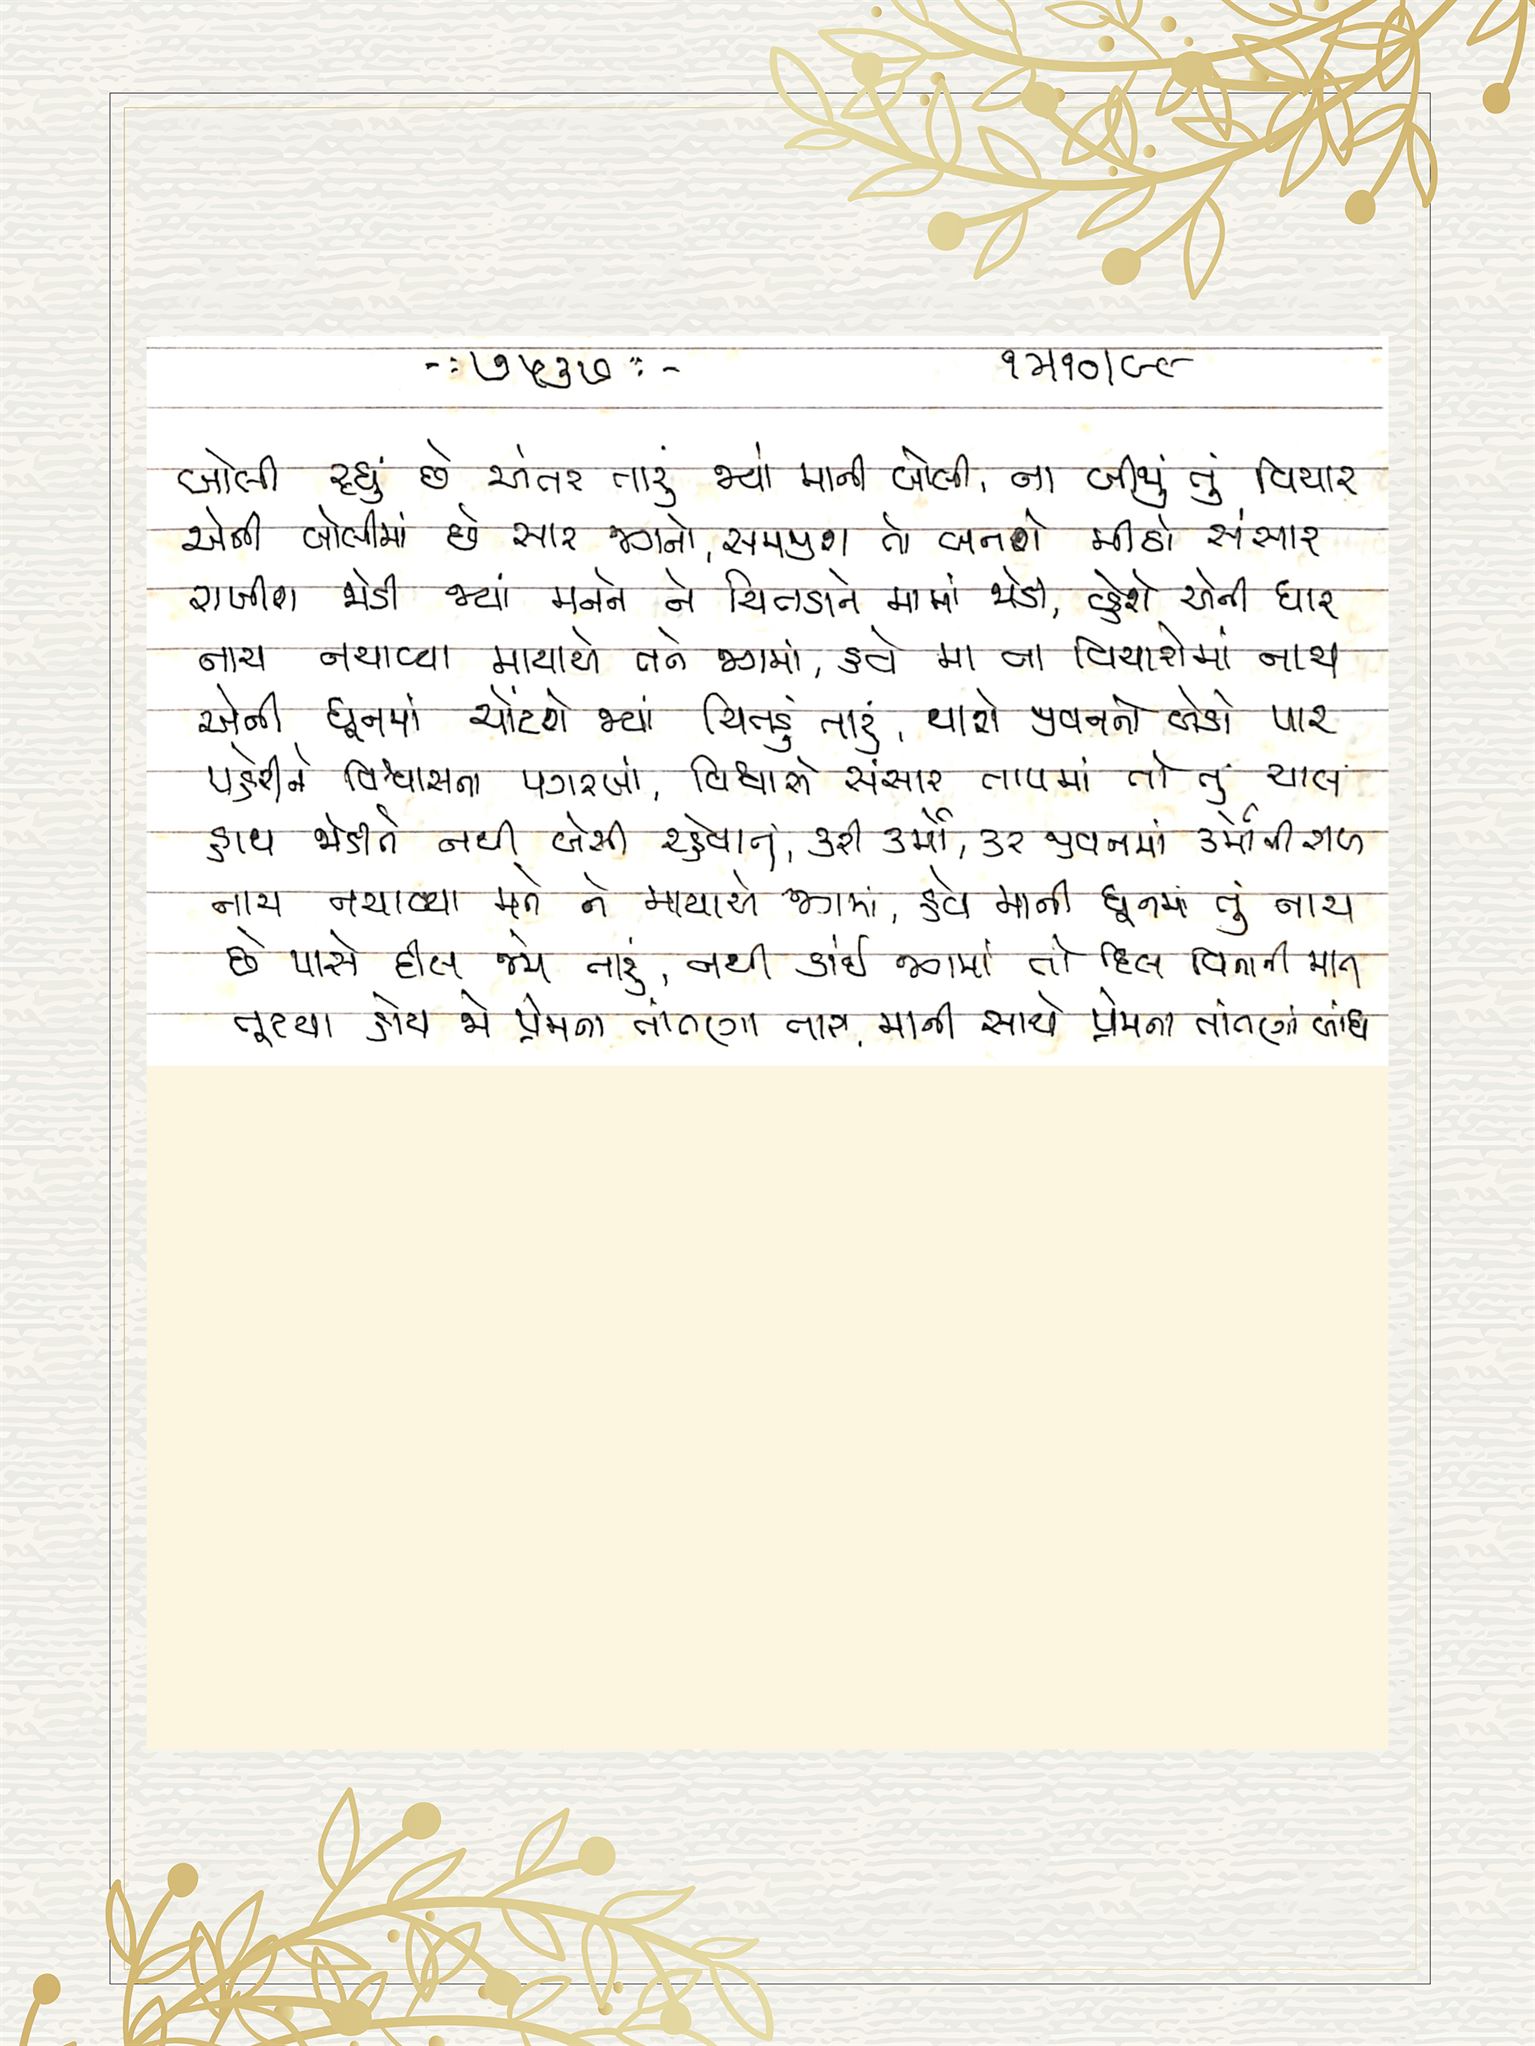 -: ૭૫૩૭ :- ૧૫૧૦/૯૯
બોલી રહ્યું છે અંતર તારું જ્યાં માની બોલી, ના બીજું તું વિચાર
એની બોલીમાં છે સાર જગનો, સમજીશ તો બનશે મીઠો સંસાર
રાખીશ જોડી જ્યાં મનને ને ચિતડાને મામાં જોડી, વ્હેશે એની ધાર
નાચ નચાવ્યા માયાએ તને જગમાં, હવે મા ના વિચારોમાં નાચ
એની ધૂનમાં ચોંટશે જ્યાં ચિતડું તારું, થાશે જીવનનો બેડો પાર
પહેરીને વિશ્વાસના પગરખાં, વિશ્વાસે સંસાર તાપમાં તો તું ચાલ
હાથ જોડીને નથી બેસી રહેવાનું, કરી કર્મો, કર જીવનમાં કર્મોની રાખ
નાચ નચાવ્યા મને ને માયાએ જગમાં, હવે માની ધૂનમાં તું નાચ
છે પાસે દીલ તારું, નથી કાંઈ જગમાં તો દિલ વિનાની માત
તૂટયા હોય જો પ્રેમના તાંતણા માની સાથે પ્રેમના તાંતણાં બાંધ